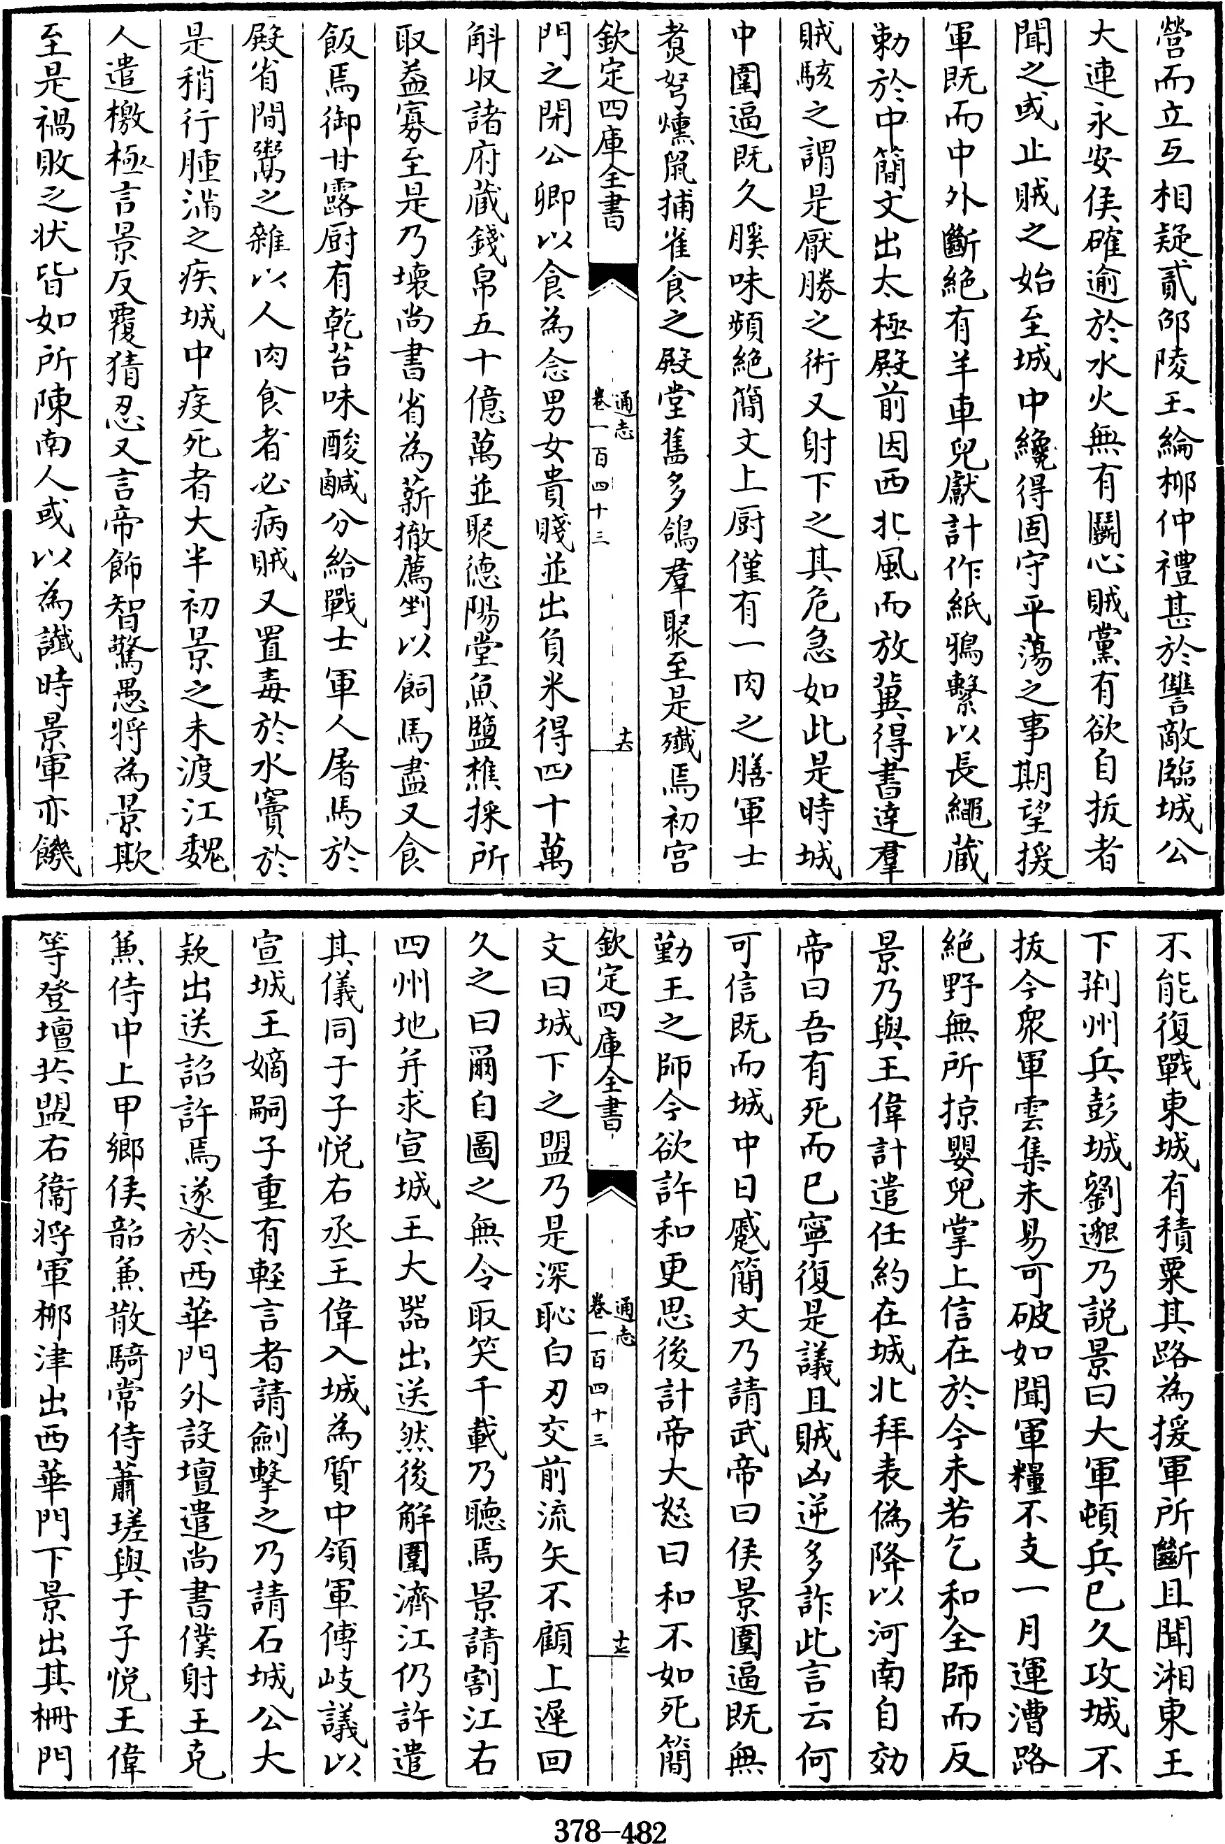 營而立互相疑貳邵陵王綸桞仲禮甚於讐敵臨城公
大連永安侯確逾於水火無有鬬心賊黨有欲自拔者
聞之或止賊之始至城中纔得固守平蕩之事期望援
軍既而中外斷絶有羊車兒獻計作紙鴉繫以長繩藏
勅於中簡文出太極殿前因西北風而放冀得書達羣
賊駭之謂是厭勝之術又射下之其危急如此是時城
中圍逼既久膎味頻絶簡文上厨僅有一肉之膳軍士
煑弩燻鼠捕雀食之殿堂舊多鴿羣聚至是殲焉初宫
欽定四庫全書
通志
卷一百四十三
十六
門之閉公卿以食為念男女貴賤並出負米得四十萬
斛収諸府藏錢帛五十億萬並聚徳陽堂魚鹽樵採所
取益寡至是乃壞尚書省為薪撤薦剉以飼馬盡又食
飯焉御甘露厨有乾苔味酸鹹分給戰士軍人屠馬於
殿省間鬻之雜以人肉食者必病賊又置毒於水竇於
是稍行腫滿之疾城中疫死者大半初景之未渡江魏
人遣檄極言景反覆猜忍又言帝飾智驚愚將為景欺
至是禍敗之狀皆如所陳南人或以為讖時景軍亦饑
不能復戰東城有積粟其路為援軍所斷且聞湘東王
下荆州兵彭城劉邈乃説景曰大軍頓兵已久攻城不
拔今衆軍雲集未易可破如聞軍糧不支一月運漕路
絶野無所掠嬰兒掌上信在於今未若乞和全師而反
景乃與王偉計遣任約在城北拜表偽降以河南自効
帝曰吾有死而已寧復是議且賊凶逆多詐此言云何
可信既而城中日蹙簡文乃請武帝曰侯景圍逼既無
勤王之師今欲許和更思後計帝大怒曰和不如死簡
欽定四庫全書
通志
卷一百四十三
十七
文曰城下之盟乃是深恥白刃交前流矢不顧上遲回
久之曰爾自圖之無令取笑千載乃聽焉景請割江右
四州地并求宣城王大器出送然後解圍濟江仍許遣
其儀同于子悦右丞王偉入城為質中領軍傅岐議以
宣城王嫡嗣子重有輕言者請劍撃之乃請石城公大
欵出送詔許焉遂於西華門外設壇遣尚書僕射王克
兼侍中上甲鄉侯韶兼散騎常侍蕭瑳與于子悦王偉
等登壇共盟右衞將軍桞津出西華門下景出其柵門
378-482